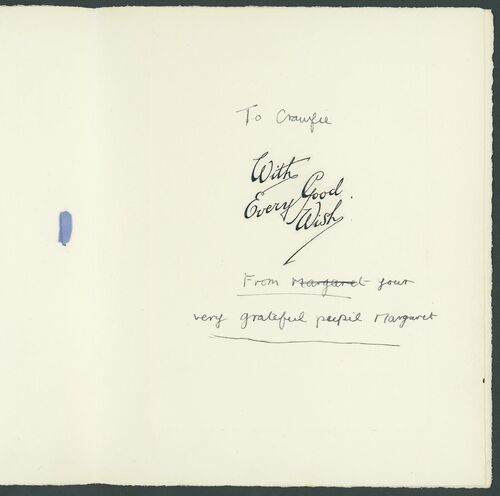 To Crawfie
With
Every Good
Wish
From Margaret your
very grateful pupil Margaret